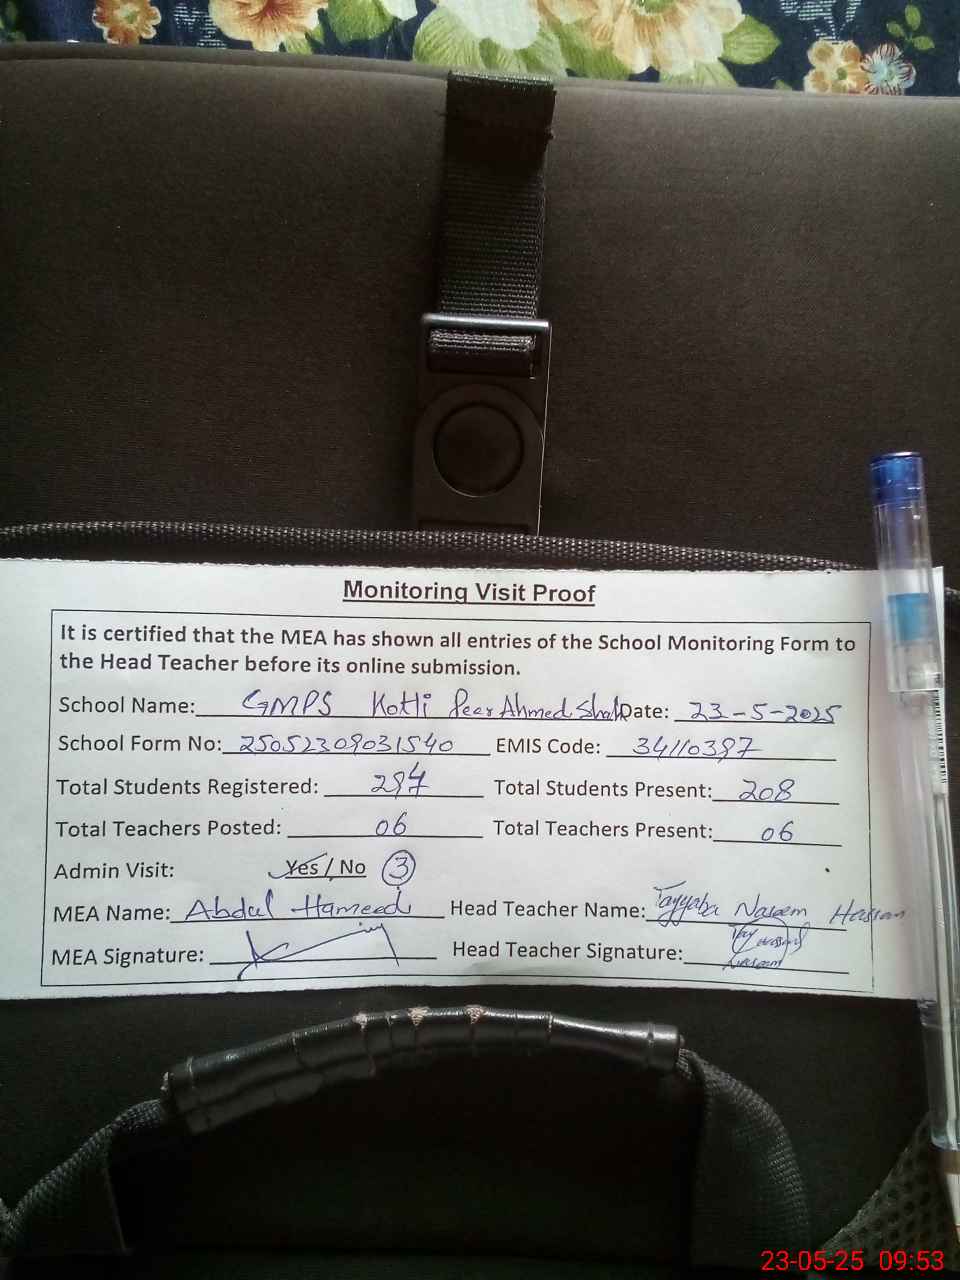 Monitoring Visit Proof
It is certified that the MEA has shown all entries of the School Monitoring Form to
the Head Teacher before its online submission.
School Name: GMPS Kotli Peer Ahmed Shah Date: 23-5-2025
School Form No: 25052309031540 EMIS Code: 34110397
Total Students Registered: 297 Total Students Present: 208
Total Teachers Posted: 06 Total Teachers Present: 06
Admin Visit: Yes / No 3
MEA Name: Abdul Hameed Head Teacher Name: Tayyaba Naseem Hassan
MEA Signature: Head Teacher Signature:
23-05-25 09:53